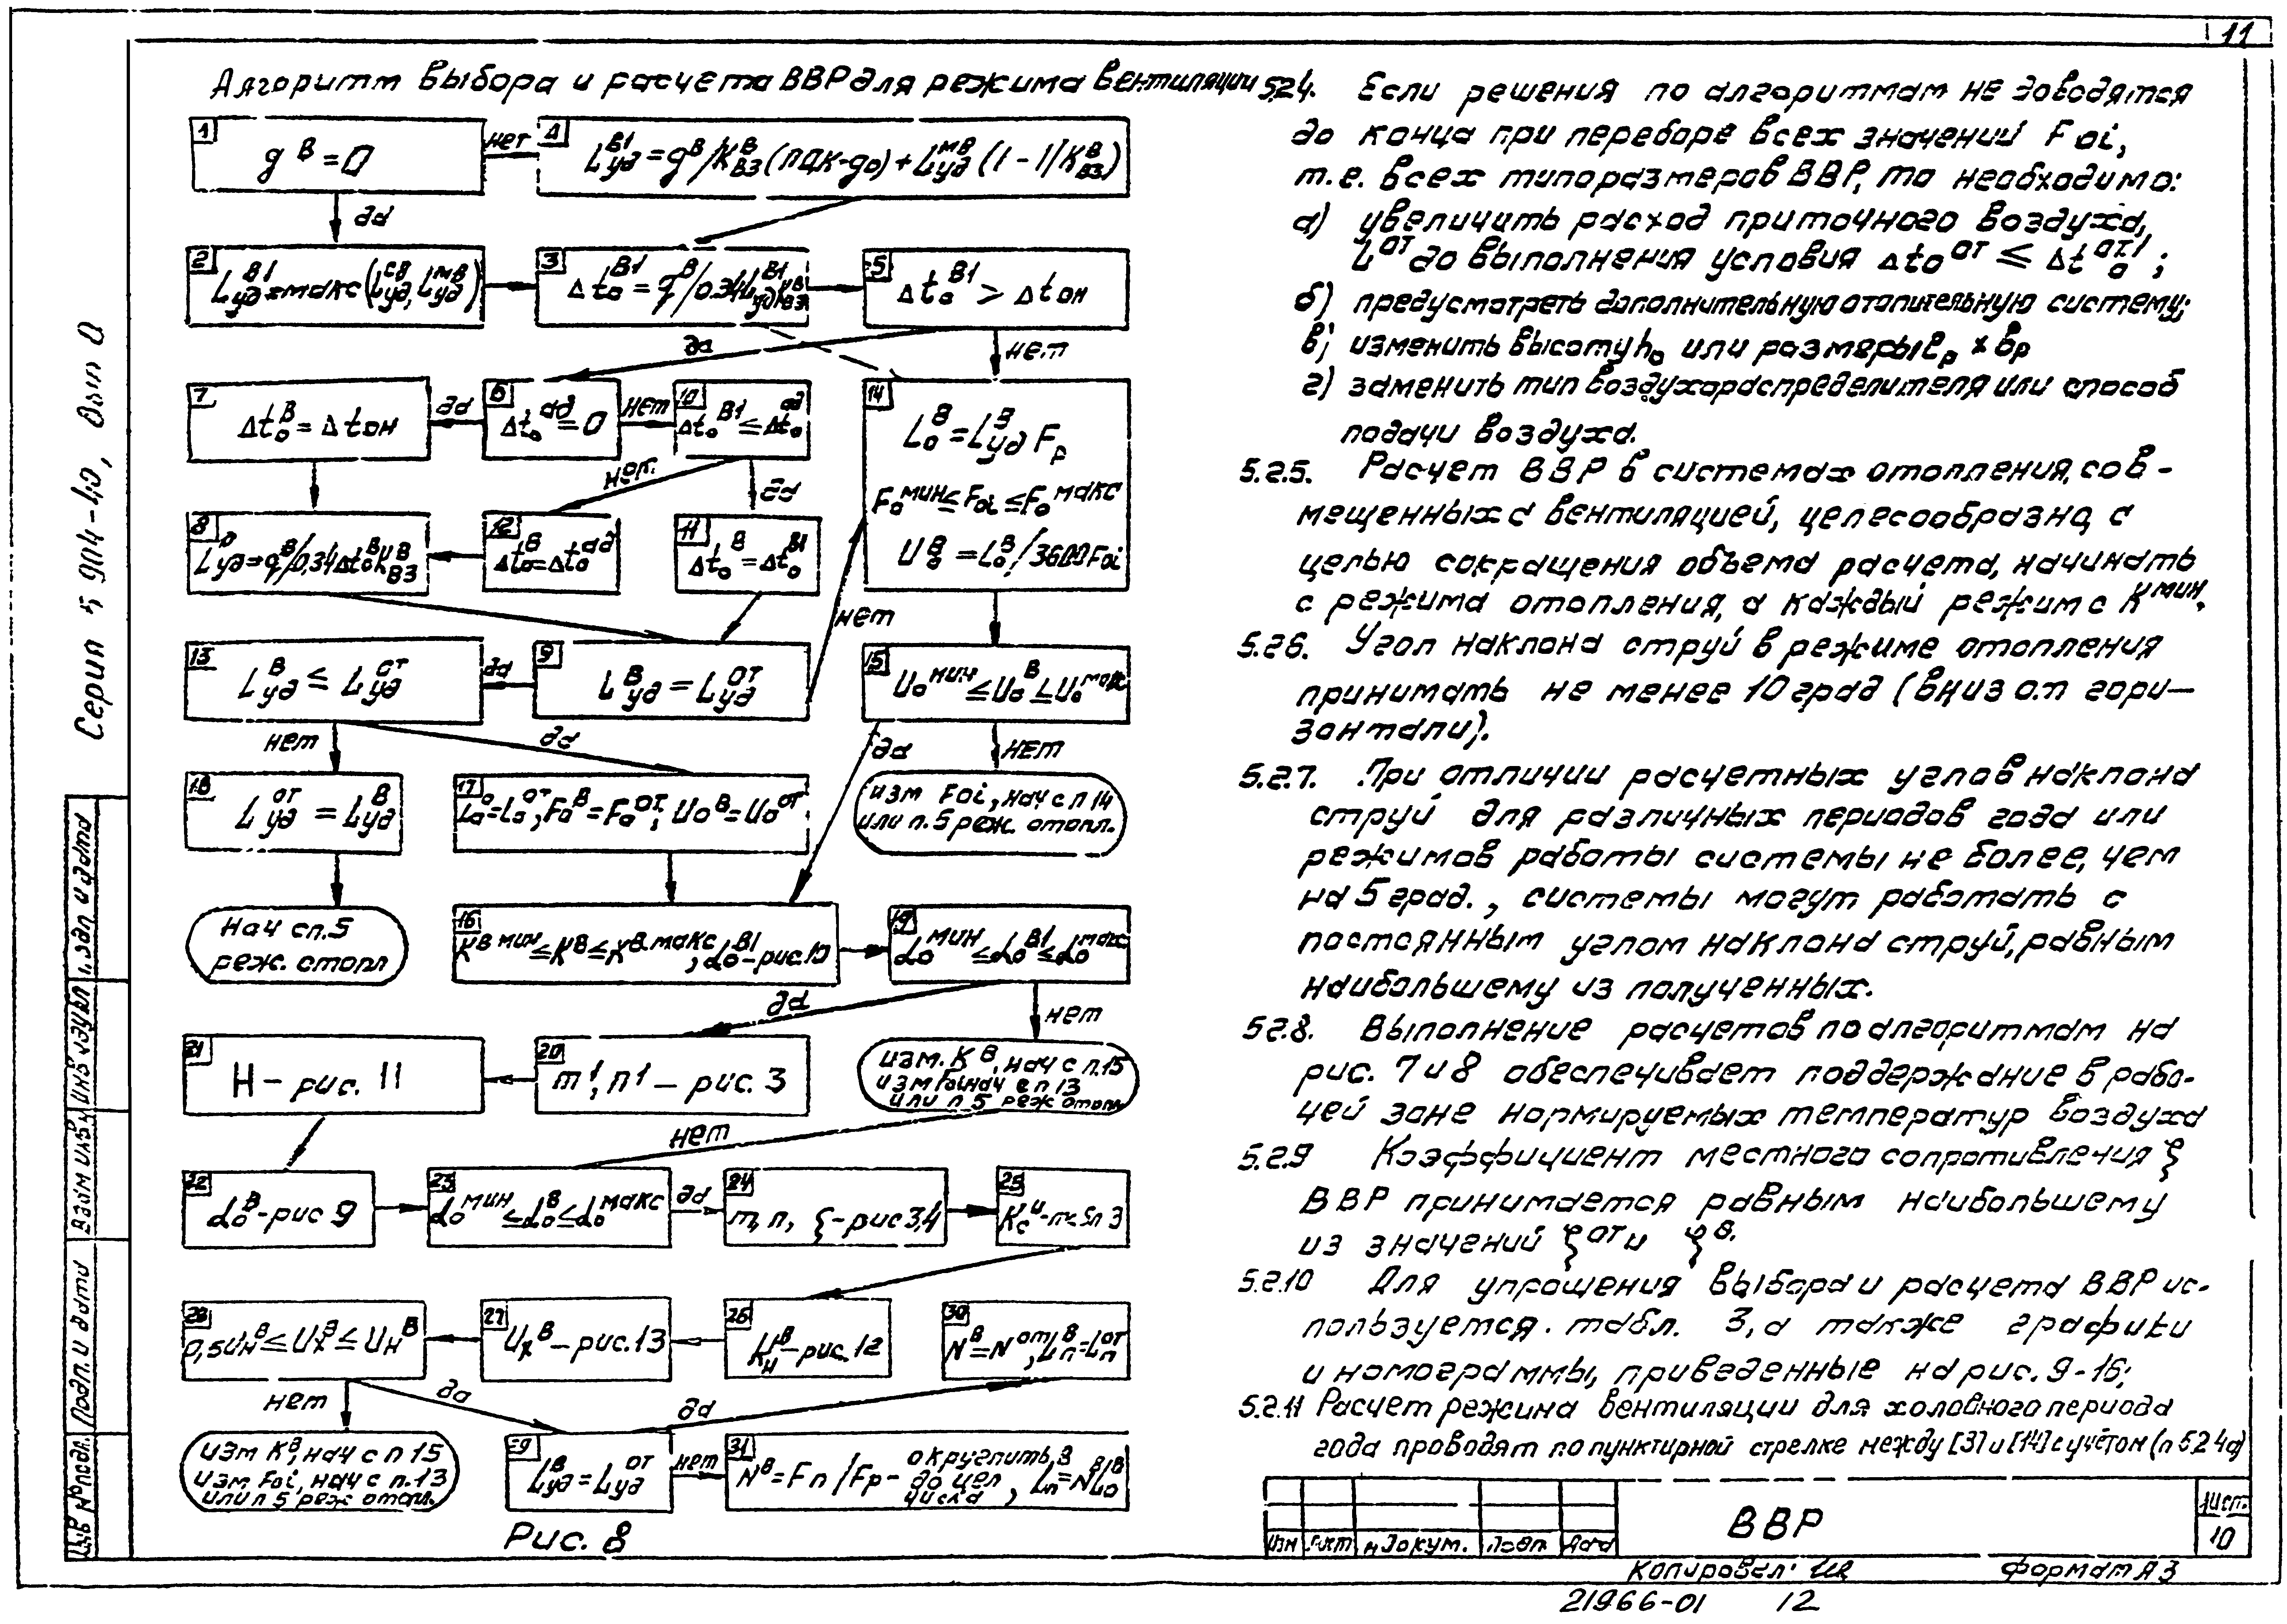 11
Алгоритм выбора и расчета ВВР для режима вентиляции
1
g^в = 0
нет
4
L_уд^в1 = g^в/K_вз^в (ПДК-g_0) + L_уд^мв (1 - 1/K_вз^в)
да
2
L_уд^в1 = макс (L_уд^св, L_уд^мв)
3
Δt_0^в1 = q^в/0.34 L_уд^в1 K_вз^в
5
Δt_0^в1 > Δt_0н
да
нет
7
Δt_0^в = Δt_0н
да
6
Δt_0^ад = 0
нет
10
Δt_0^в1 ≤ Δt_0^ад
14
L_0^в = L_уд^в F_р
F_0^мин ≤ F_0i ≤ F_0^макс
U_0^в = L_0^в/3600 F_0i
да
8
L_уд^в = q^в/0,34 Δt_0^в K_вз^в
12
Δt_0^в = Δt_0^ад
11
Δt_0^в = Δt_0^в1
нет
13
L_уд^в ≤ L_уд^от
да
9
L_уд^в = L_уд^от
15
U_0^мин ≤ U_0^в ≤ U_0^макс
нет
да
да
нет
18
L_уд^от = L_уд^в
17
L_0^в = L_0^от, F_0^в = F_0^от, U_0^в = U_0^от
изм F_0i, нач с п 14
или п. 5 реж. отопл.
Нач с п. 5
реж. отопл
16
K^в мин ≤ K^в ≤ K^в макс, α_0^в1 - рис. 10
19
α_0^мин ≤ α_0^в1 ≤ α_0^макс
да
нет
21
H - рис. 11
20
m^1, n^1 - рис. 3
изм. K^в, нач с п. 15
изм F_0i нач с п 13
или п. 5 реж отопл
нет
22
α_0^в - рис 9
23
α_0^мин ≤ α_0^в ≤ α_0^макс
да
24
m, n, ξ - рис 3,4
25
28
0,5U_н^в ≤ U_x^в ≤ U_н^в
27
U_x^в - рис. 13
26
K_н^в - рис. 12
30
N^в = N^от, L_п^в = L_п^от
нет
да
да
изм K^в, нач с п 15
изм F_0i, нач с п. 13
или п 5 реж отопл.
29
L_уд^в = L_уд^от
нет
31
N^в = F_п / F_р - округлить до цел числа, L_п^в = N^в L_0^в
Рис. 8
5.2.4. Если решения по алгоритмам не доводятся
до конца при переборе всех значений F_0i,
т.е. всех типоразмеров ВВР, то необходимо:
а) увеличить расход приточного воздуха,
L^от до выполнения условия Δt_0^от ≤ Δt_0^от1;
б) предусмотреть дополнительную отопительную систему;
в) изменить высоту h_0 или размеры ℓ_р × в_р
г) заменить тип воздухораспределителя или способ
подачи воздуха.
5.2.5. Расчет ВВР в системах отопления, сов-
мещенных с вентиляцией, целесообразно, с
целью сокращения объема расчета, начинать
с режима отопления, а каждый режим с K^мин.
5.2.6. Угол наклона струй в режиме отопления
принимать не менее 10 град (вниз от гори-
зонтали).
5.2.7. При отличии расчетных углов наклона
струй для различных периодов года или
режимов работы системы не более, чем
на 5 град., системы могут работать с
постоянным углом наклона струй, равным
наибольшему из полученных.
5.2.8. Выполнение расчетов по алгоритмам на
рис. 7 и 8 обеспечивает поддержание в рабо-
чей зоне нормируемых температур воздуха
5.2.9 Коэффициент местного сопротивления ξ
ВВР принимается равным наибольшему
из значений ξ^от и ξ^в.
5.2.10 Для упрощения выбора и расчета ВВР ис-
пользуется табл. 3, а также графики
и номограммы, приведенные на рис. 9-16;
5.2.11 Расчет режима вентиляции для холодного периода
года проводят по пунктирной стрелке между [3] и [14] с учётом (п 5.2.4а)
Серия 5 904-40, Вып 0
Взам инв N
Подп. и дата
Инв N подл.
Изм
Лист
N докум.
Подп
Дата
ВВР
Лист.
10
Копировал:
Формат А3
21966-01 12